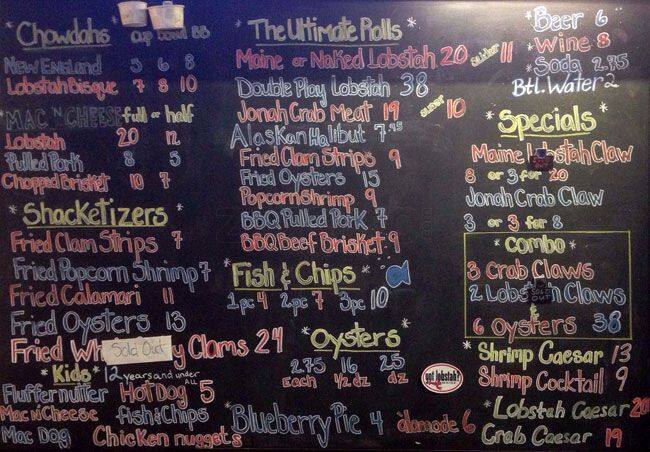 * Chowdahs * cup bowl BB
New England 5 6 8
Lobstah Bisque 7 8 10
*MAC N CHEESE* full or half
Lobstah 20 12
Pulled Pork 8 5
Chopped Brisket 10 7
* Shacketizers *
Fried Clam Strips 7
Fried Popcorn Shrimp 7
Fried Calamari 11
Fried Oysters 13
Fried Wh Sold Out y Clams 24
* Kids * 12 years and under ALL
Fluffernutter Hot Dog 5
Mac n Cheese fish & chips
Mac Dog Chicken nuggets
* The Ultimate Rolls *
Maine or Naked Lobstah 20 11
Double Play Lobstah 38
Jonah Crab Meat 19 10
Alaskan Halibut 7.95
Fried Clam Strips 9
Fried Oysters 15
Popcorn Shrimp 9
BBQ Pulled Pork 7
BBQ Beef Brisket 9
* Fish & Chips *
1pc 4 2pc 7 3pc 10
* Oysters *
2.75 16 25
Each 1/2 dz dz
got lobstah?
*Blueberry Pie 4 alamode 6
* Beer 6
* Wine 8
* Soda 2.45
Btl. Water 2
* Specials *
Maine Lobstah Claw
8 or 3 for 20
Jonah Crab Claw
3 or 3 for 8
* Combo *
3 Crab Claws
2 Lobstah Claws
SOLD OUT
&
6 Oysters 38
*Shrimp Caesar 13
Shrimp Cocktail 9
*Lobstah Caesar 20
Crab Caesar 19